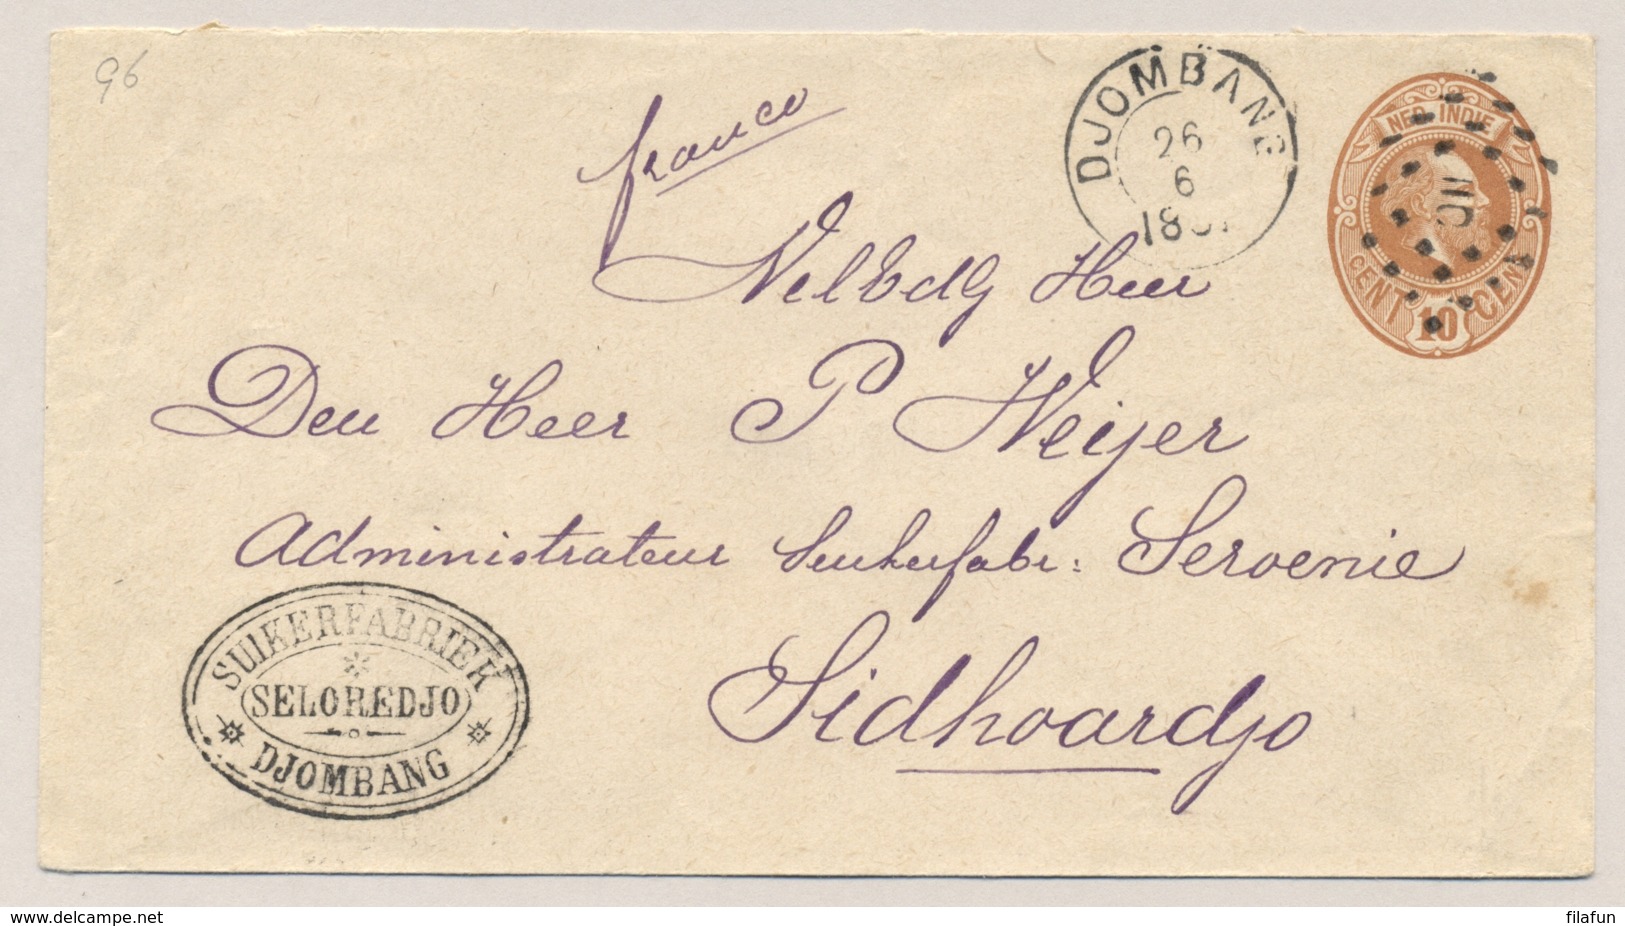 96
franco
DJOMBANG
26
6
NED. INDIE
CENT 10 CENT
WelEdG Heer
Den Heer P Weijer
Administrateur Suikerfabr: Seroenie
Sidhoardjo
SUIKERFABRIEK
SELOREDJO
DJOMBANG
www.delcampe.net
filafun